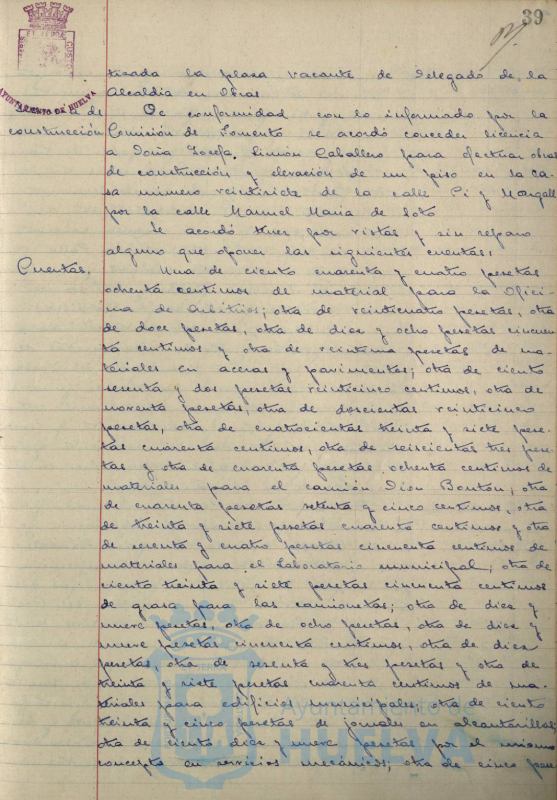 39
AYUNTAMIENTO DE HUELVA
tizada la plaza vacante de Delegado de la
Alcaldía en Obras
de
construcción
De conformidad con lo informado por la
Comisión de Fomento se acordó conceder licencia
a Doña Josefa Limón Caballero para efectuar obras
de construcción y elevación de un piso en la ca-
sa número veintisiete de la calle Pi y Margall
por la calle Manuel María de Soto
Se acordó tener por vistas y sin reparo
alguno que oponer las siguientes cuentas:
Cuentas.
Una de ciento cuarenta y cuatro pesetas
ochenta centimos de material para la Ofici-
na de Arbitrios; otra de veinticuatro pesetas, otra
de doce pesetas, otra de diez y ocho pesetas cincuen-
ta centimos y otra de veintiuna pesetas de ma-
teriales en aceras y pavimentos; otra de ciento
sesenta y dos pesetas veinticinco centimos, otra de
noventa pesetas, otra de doscientas veinticinco
pesetas, otra de cuatrocientas treinta y siete pese-
tas cuarenta centimos, otra de seiscientas tres pese-
tas y otra de cuarenta pesetas ochenta centimos de
materiales para el camión Dion Bouton; otra
de cuarenta pesetas setenta y cinco centimos, otra
de treinta y siete pesetas cuarenta centimos y otra
de sesenta y cuatro pesetas cincuenta centimos de
materiales para el Laboratorio municipal; otra de
ciento treinta y siete pesetas cincuenta centimos
de grasa para las camionetas; otra de diez y
nueve pesetas, otra de ocho pesetas, otra de diez y
nueve pesetas cincuenta centimos, otra de diez
pesetas, otra de sesenta y tres pesetas y otra de
treinta y siete pesetas cuarenta centimos de ma-
teriales para edificios municipales; otra de ciento
treinta y cinco pesetas de jornales en alcantarillas;
otra de ciento diez y nueve pesetas por el mismo
concepto en servicios mecánicos; otra de cinco pese-
Ayuntamiento de
HUELVA